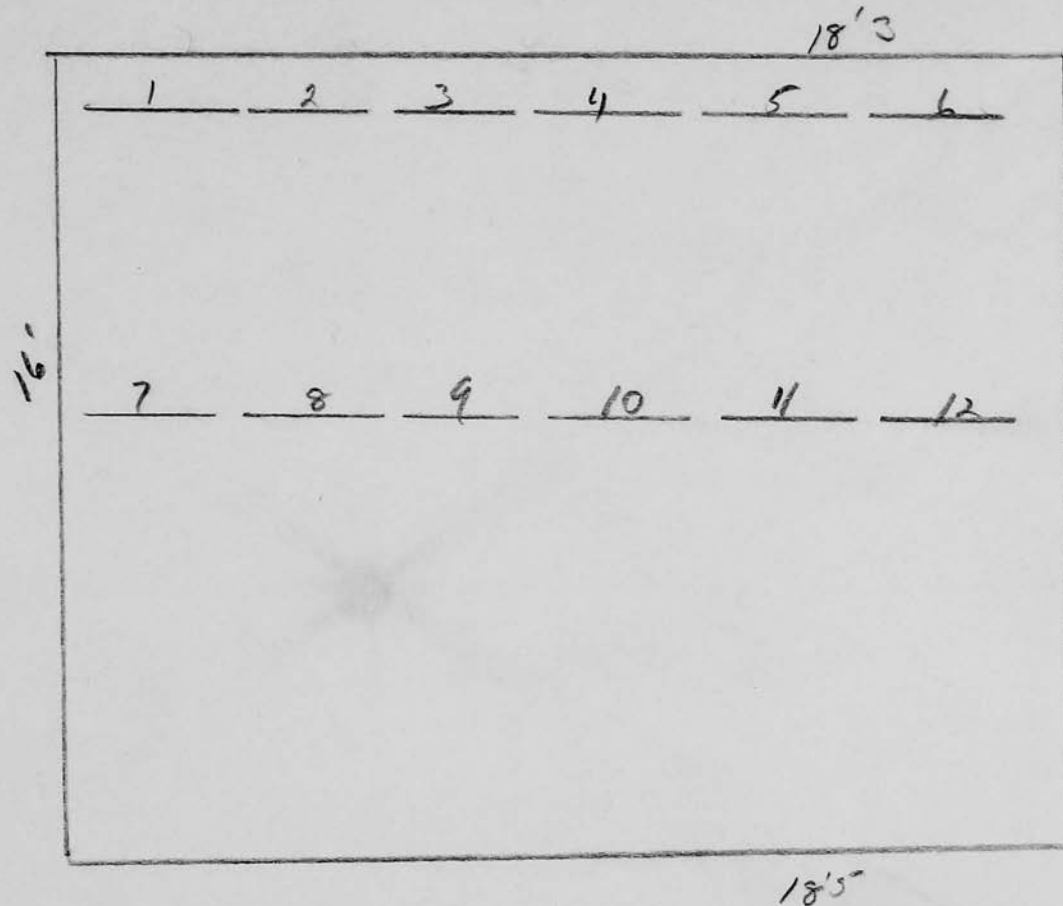 18'3
1 2 3 4 5 6
16'
7 8 9 10 11 12
18'5